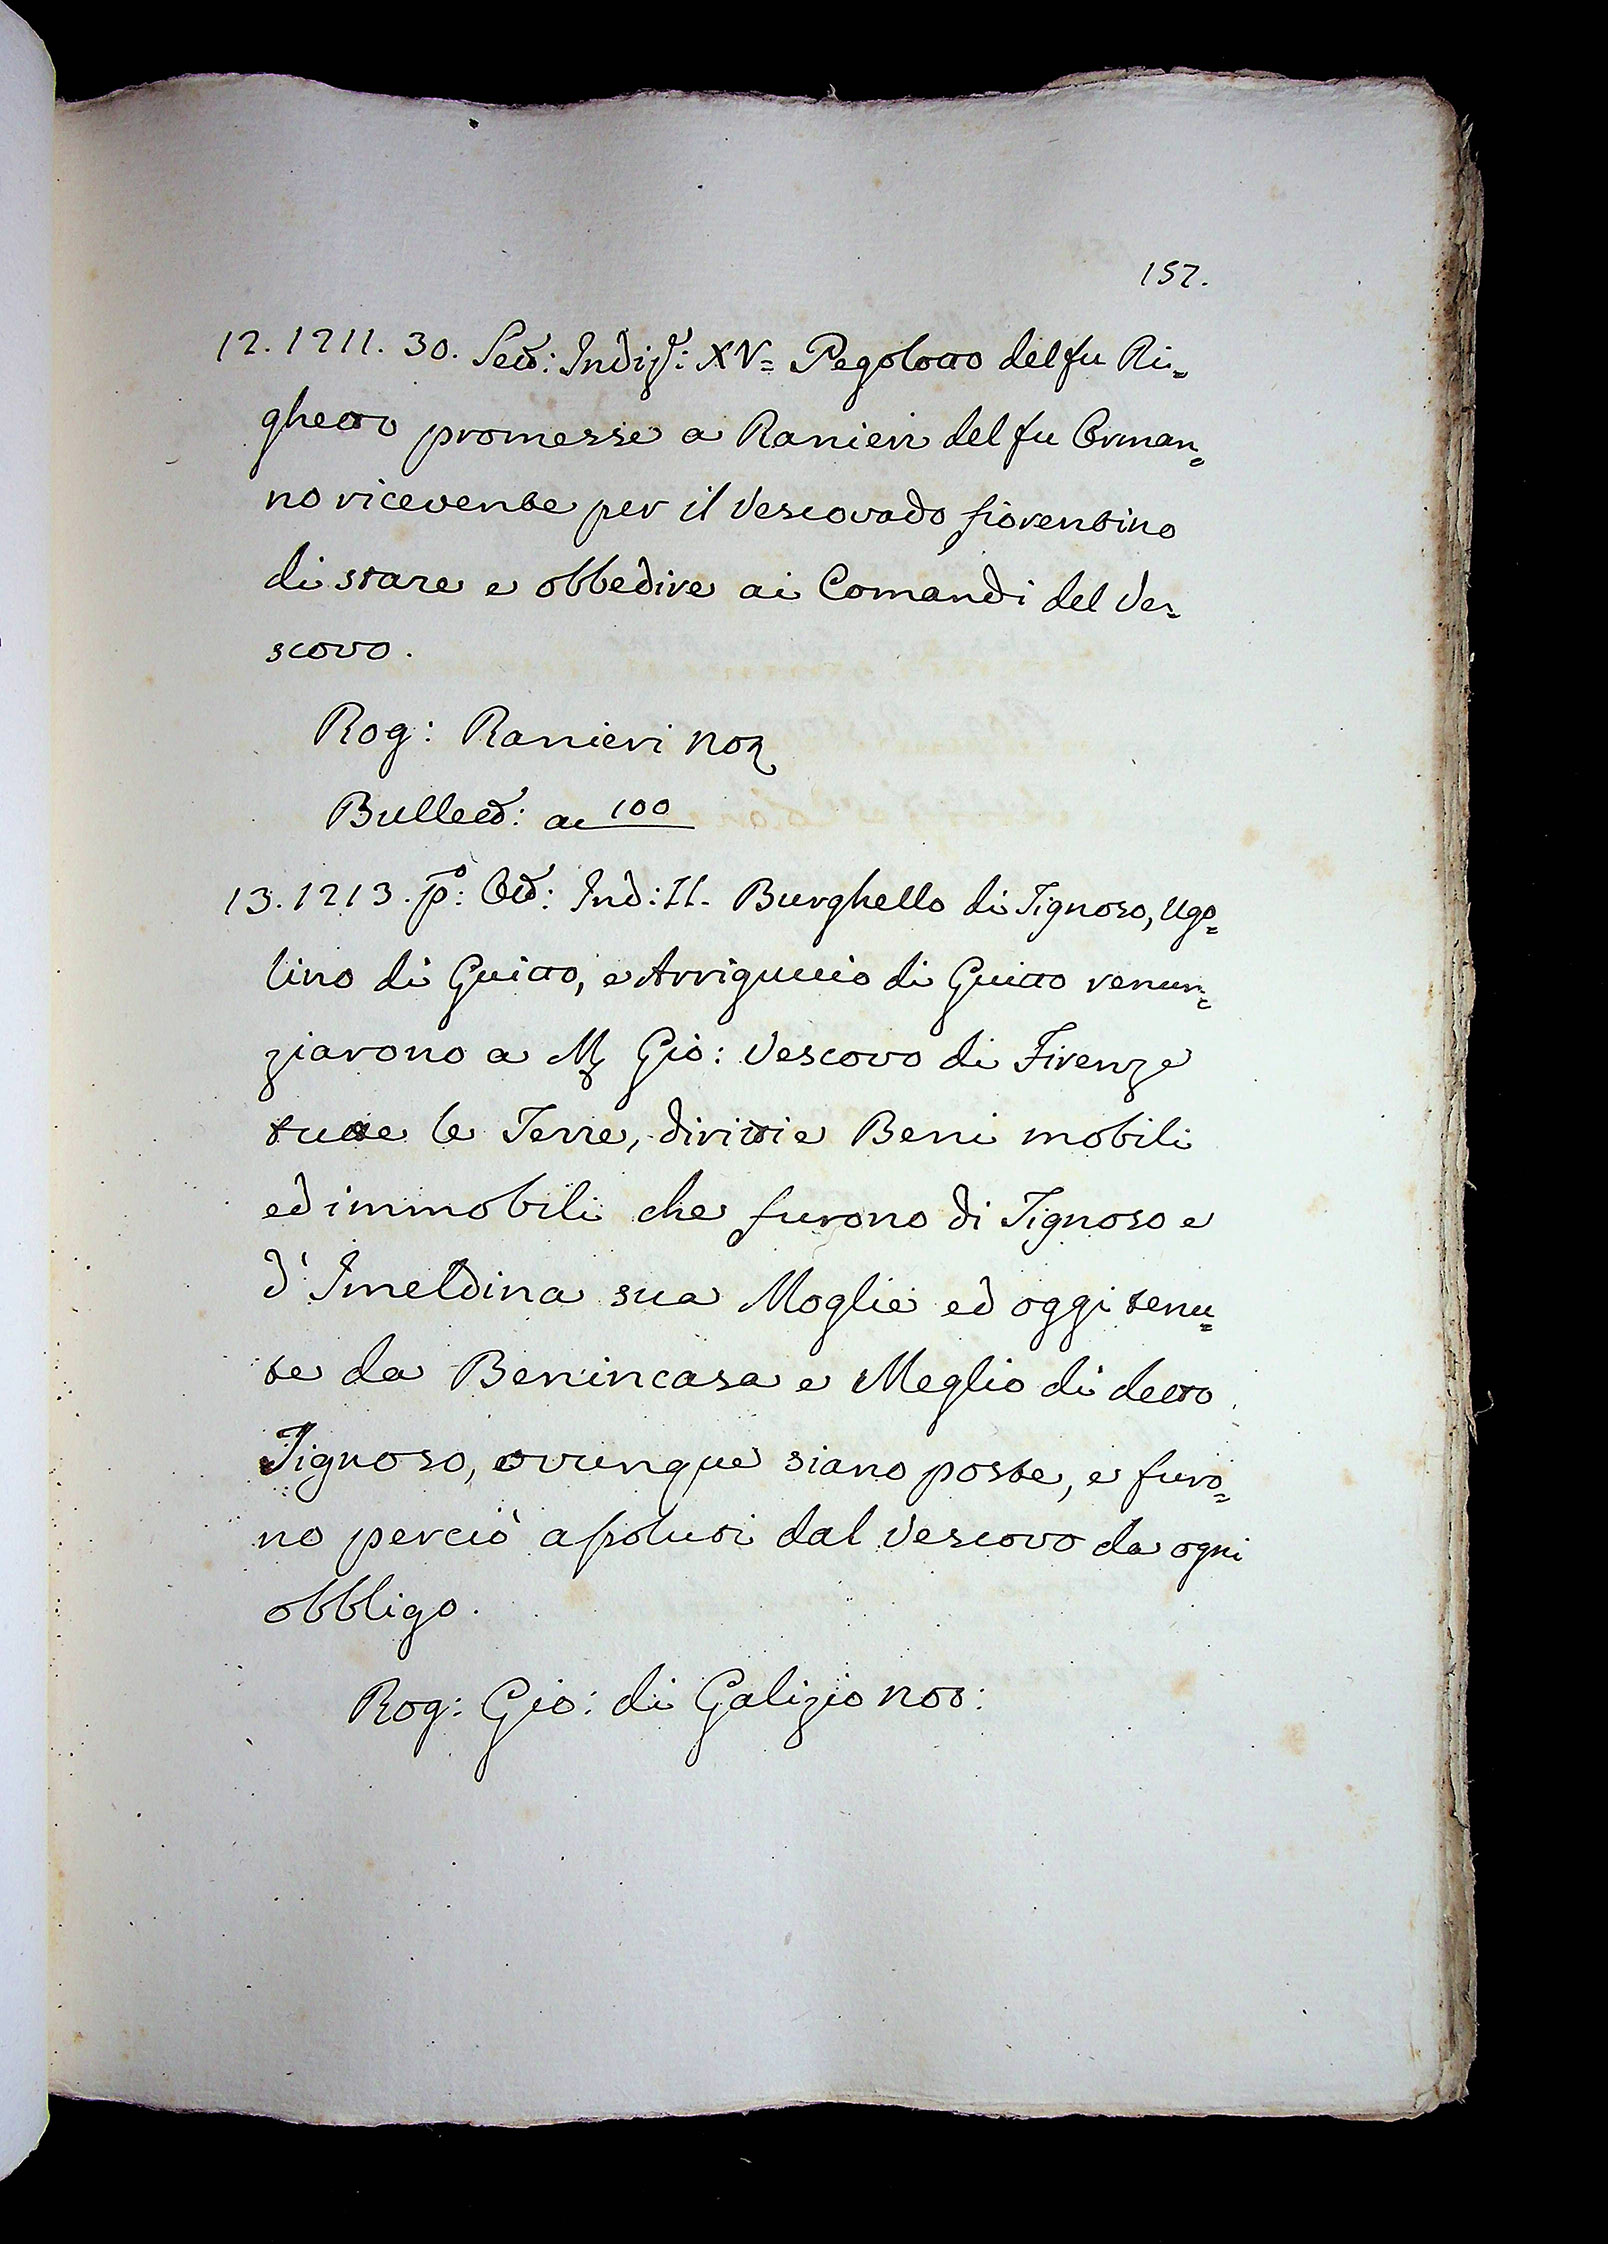 157.
12. 1211. 30. Sett: Indiz: XV= Pegolotto del fu Ri=
ghetto promesse a Ranieri del fu Erman=
no ricevente per il Vescovado fiorentino
di stare e obbedire ai Comandi del Ve=
scovo.
Rog: Ranieri not
Bullett: a 100
13. 1213. p.º: Ott: Ind: II. Burghello di Tignoso, Ugo=
lino di Guitto, e Arriguccio di Guitto renun=
ziarono a M Gio: Vescovo di Firenze
tutte le Terre, diritti e Beni mobili
ed immobili che furono di Tignoso e
d'Imeldina sua Moglie ed oggi tenu=
te da Benincasa e Meglio di detto
Tignoso, ovunque siano poste, e furo=
no perciò assoluti dal Vescovo da ogni
obbligo.
Rog: Gio: di Galizio not: